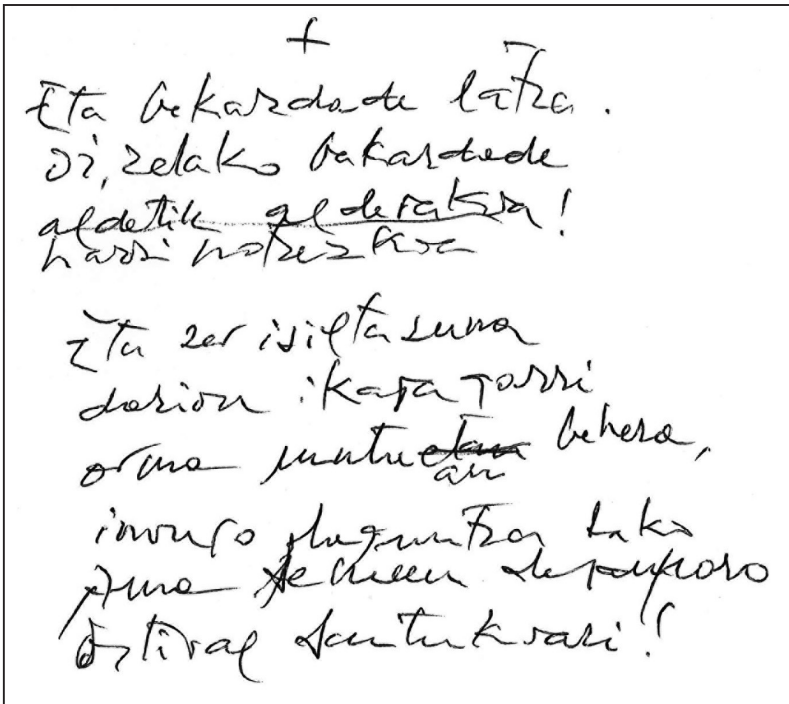 +
Eta bakardade latza.
Oi, zelako bakardade
aldetik alderakoa!
harri hotzezkoa
Eta zer isiltasuna
darion ikara gorri
orma mutuetan an behera,
inongo laguntza
Ama
Ostiral Santukoari!